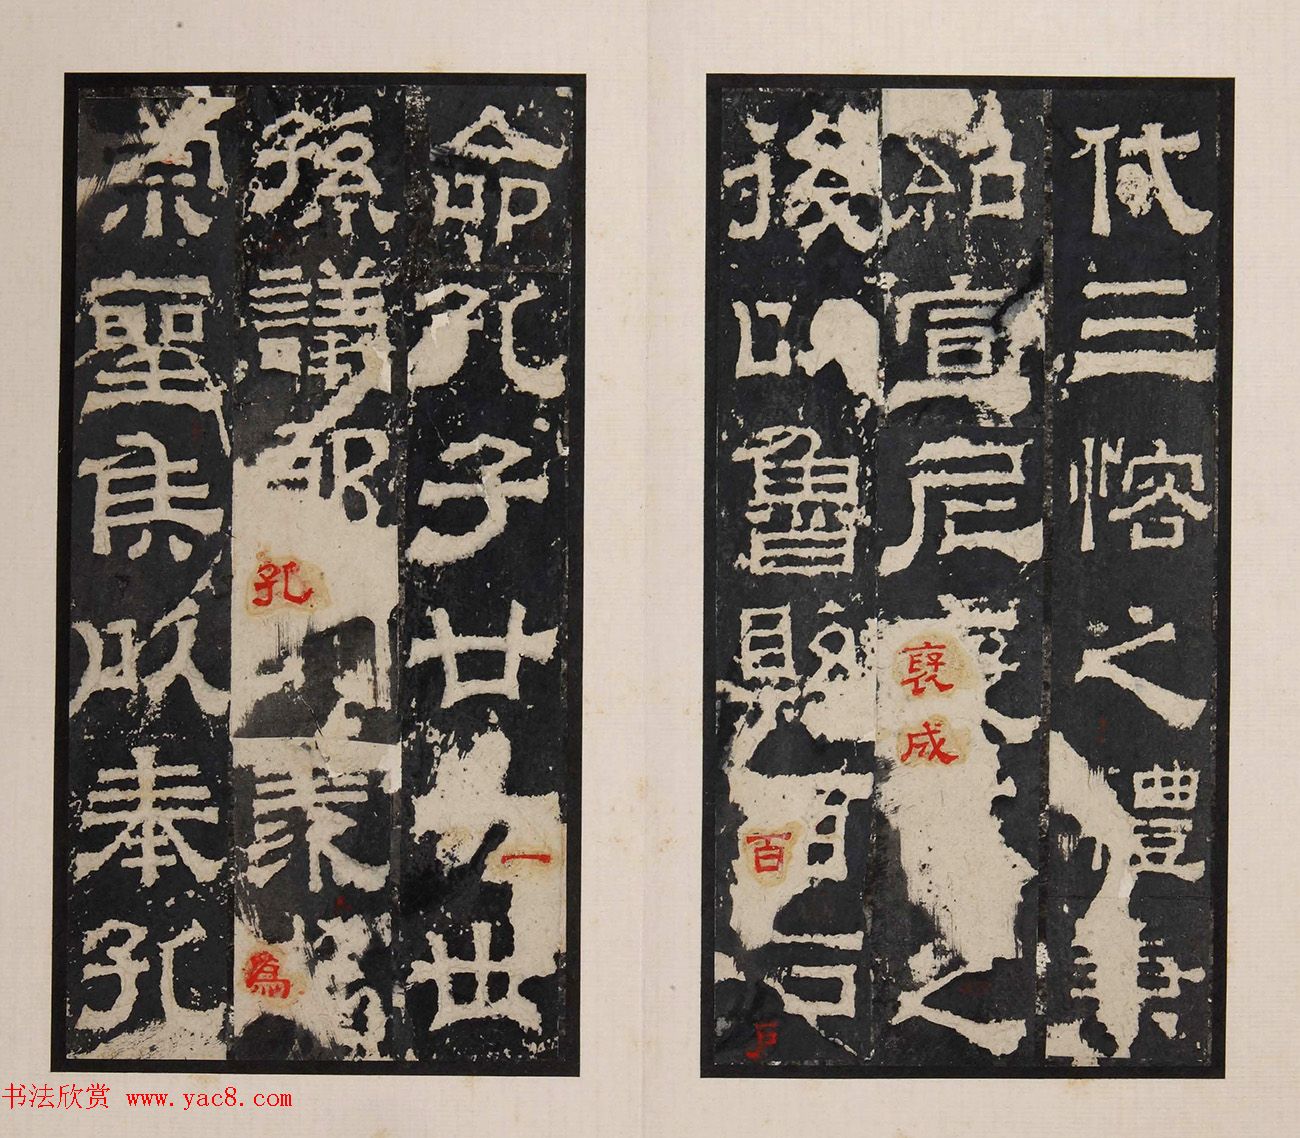 代三愘之禮兼
紹宣尼褒成之
後以魯縣百户
命孔子廿一世
孫議郎孔羡為
宗聖侯以奉孔
书法欣赏 www.yac8.com